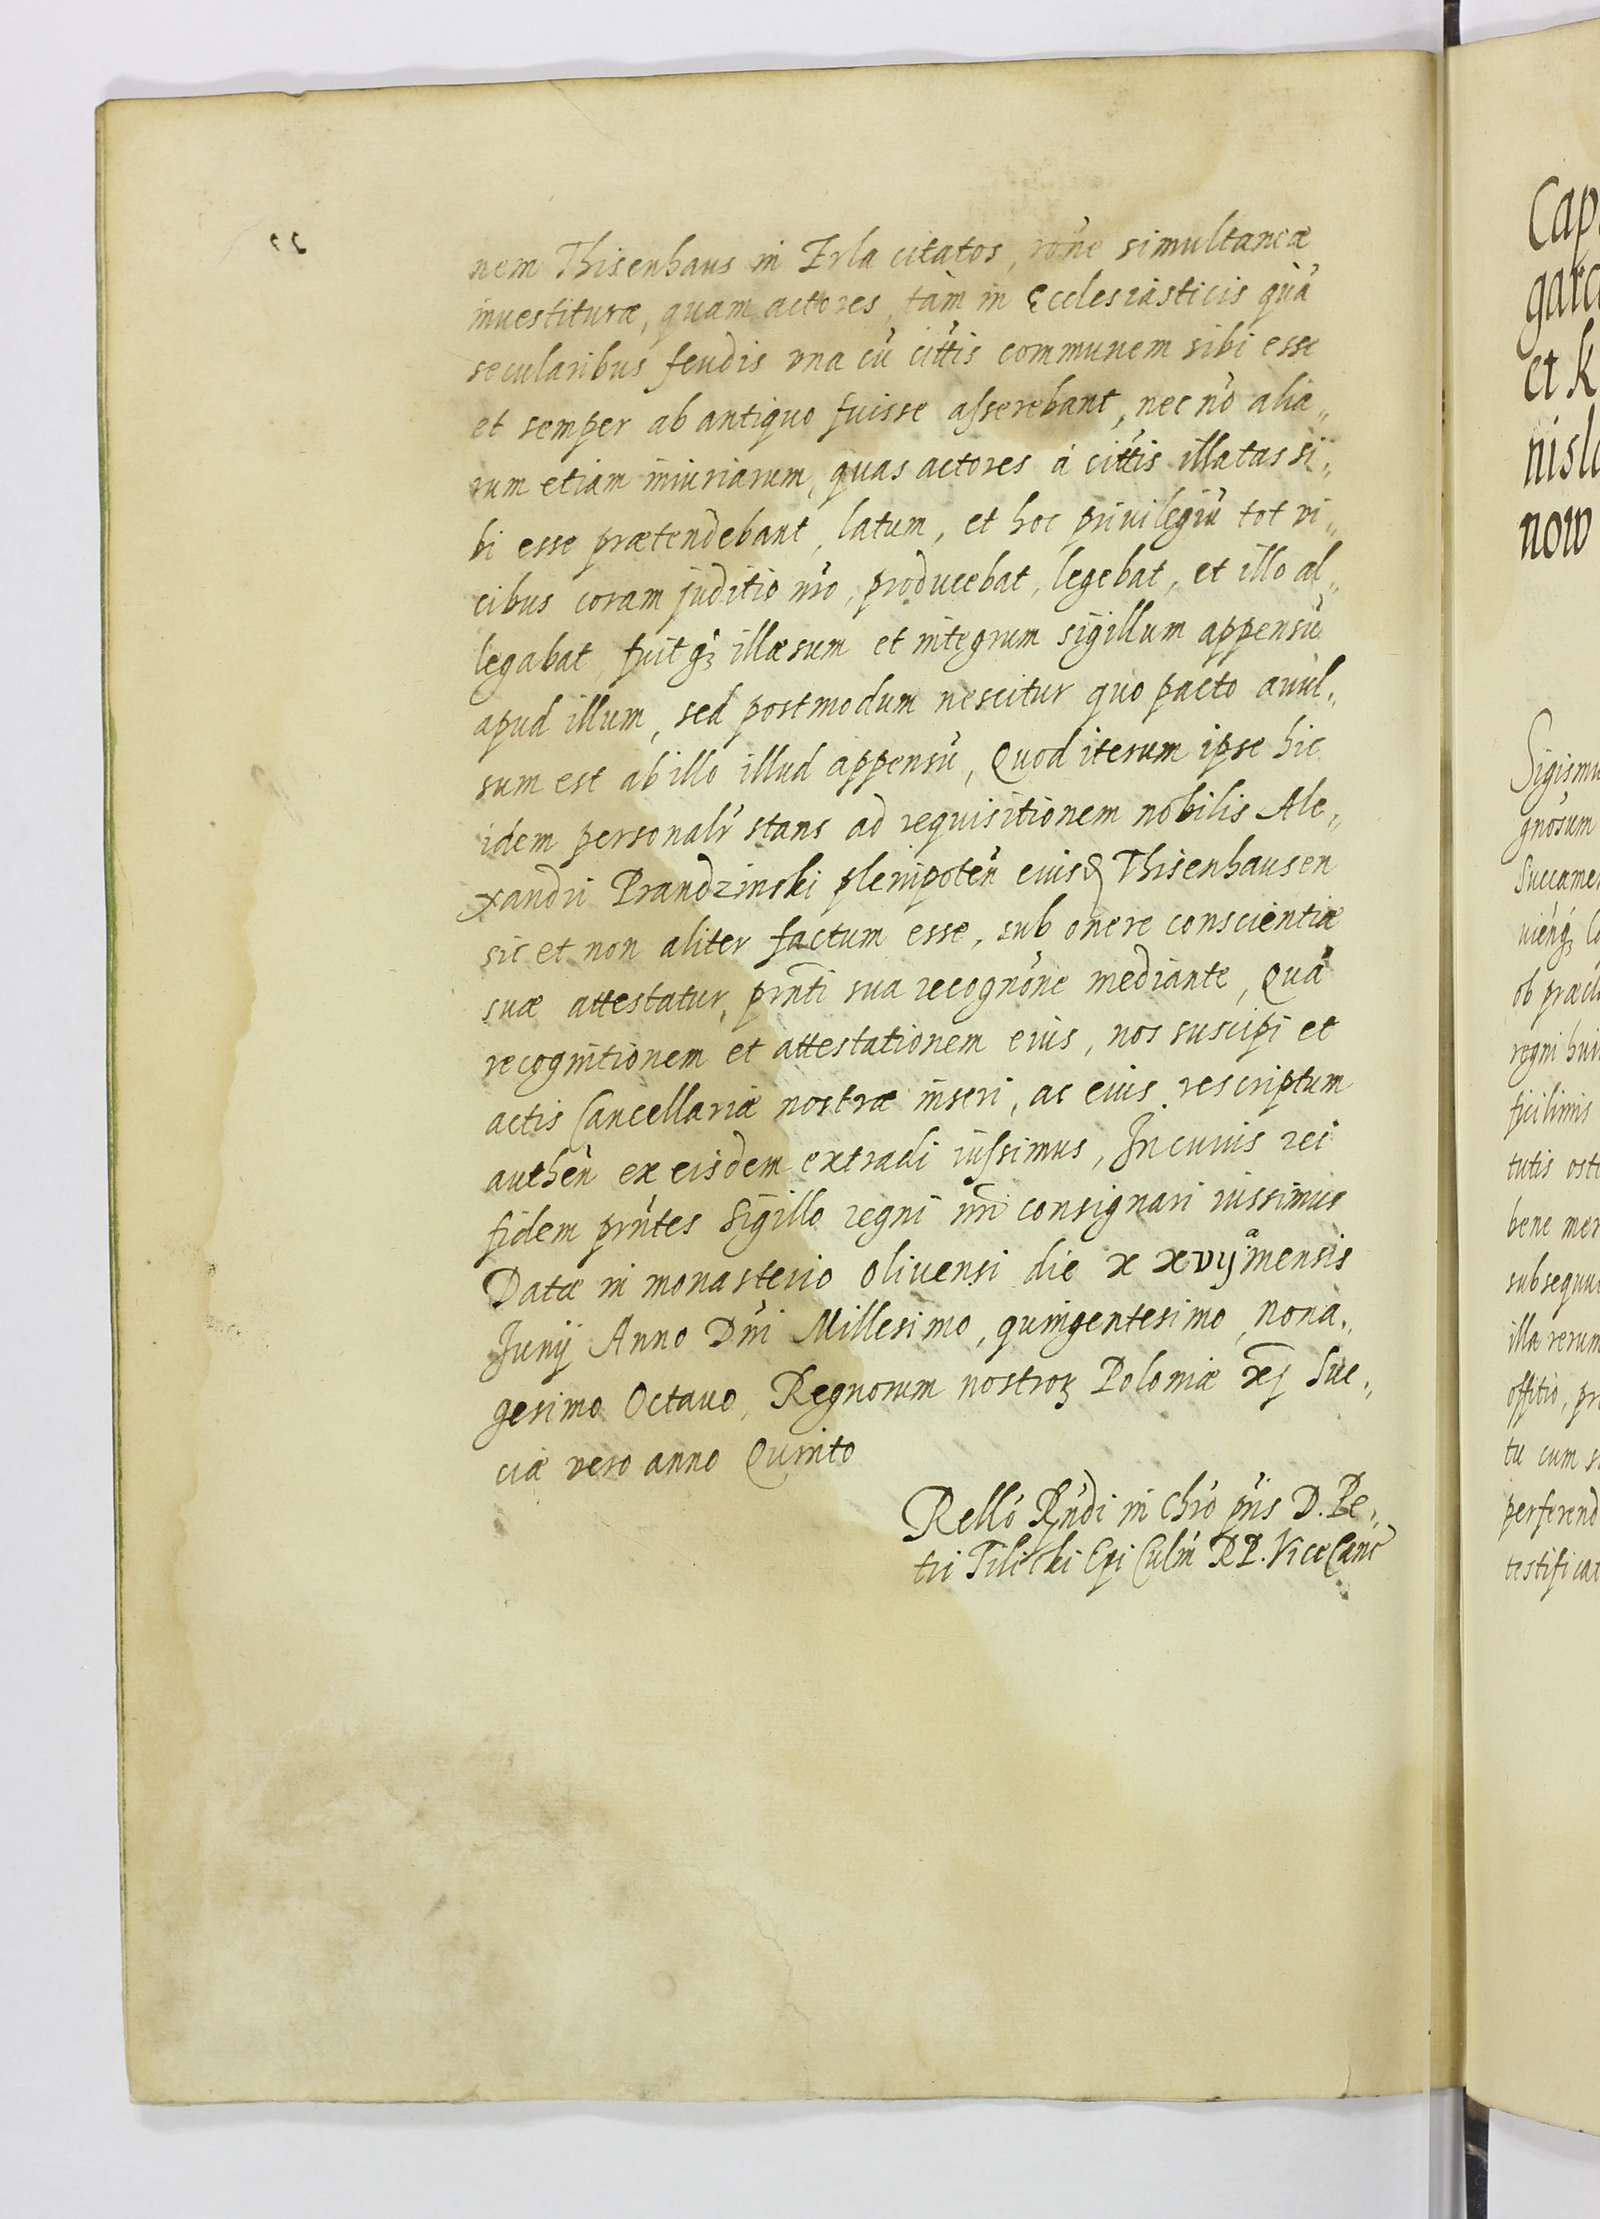 nem Thisenhaus in Erla citatos, rōne simultaneæ
inuestituræ, quam actores, tàm in Ecclesiasticis quà
secularibus feudis vna cū cittis communem sibi esse
et semper ab antiquo fuisse asserebant, nec nō alia„
rum etiam iniuriarum, quas actores à cittis illatas si„
bi esse prætendebant, latum, et hoc priuilegiū tot vi„
cibus coram juditio nrō, producebat, legebat, et illo al„
legabat, fuitq3 illæsum et integrum sigillum appensū
apud illum, sed postmodum nescitur quo pacto auul„
sum est ab illo illud appensū, Quod iterum ipse hic
idem personalr̄ stans ad requisitionem nobilis Ale„
xandri Prandzinski plenipotēn eiusd Thisenhausen
sic et non aliter factum esse, sub onere conscientiæ
suæ attestatur, prn̄ti sua recognōne mediante, Quā
recognitionem et attestationem eius, nos suscipi et
actis Cancellariæ nostræ inseri, ac eius rescriptum
authēn ex eisdem extradi iussimus, In cuius rei
fidem prn̄tes Sigillo regni nrī consignari iussimus
Datæ in monasterio oliuensi die xxvijᵃ mensis
Junij Anno Dn̄i Millesimo, quingentesimo, nona„
gesimo Octauo, Regnorum nostroꝝ Poloniæ xj Sue„
ciæ vero anno Quinto
Rellō Rn̄di in Chrō prīs D. Pe„
tri Tilicki Epi Culm̄ RP. Vice Canc
Cap
garc
et K
nisla
now
Sigismu
gnōsum
Succame
uiēnq3 Co
ob præcla
regni hui
ficilimis
tutis oste
bene mer
subsequu
illa rerum
offitio, pr
tu cum s
perferend
testificat